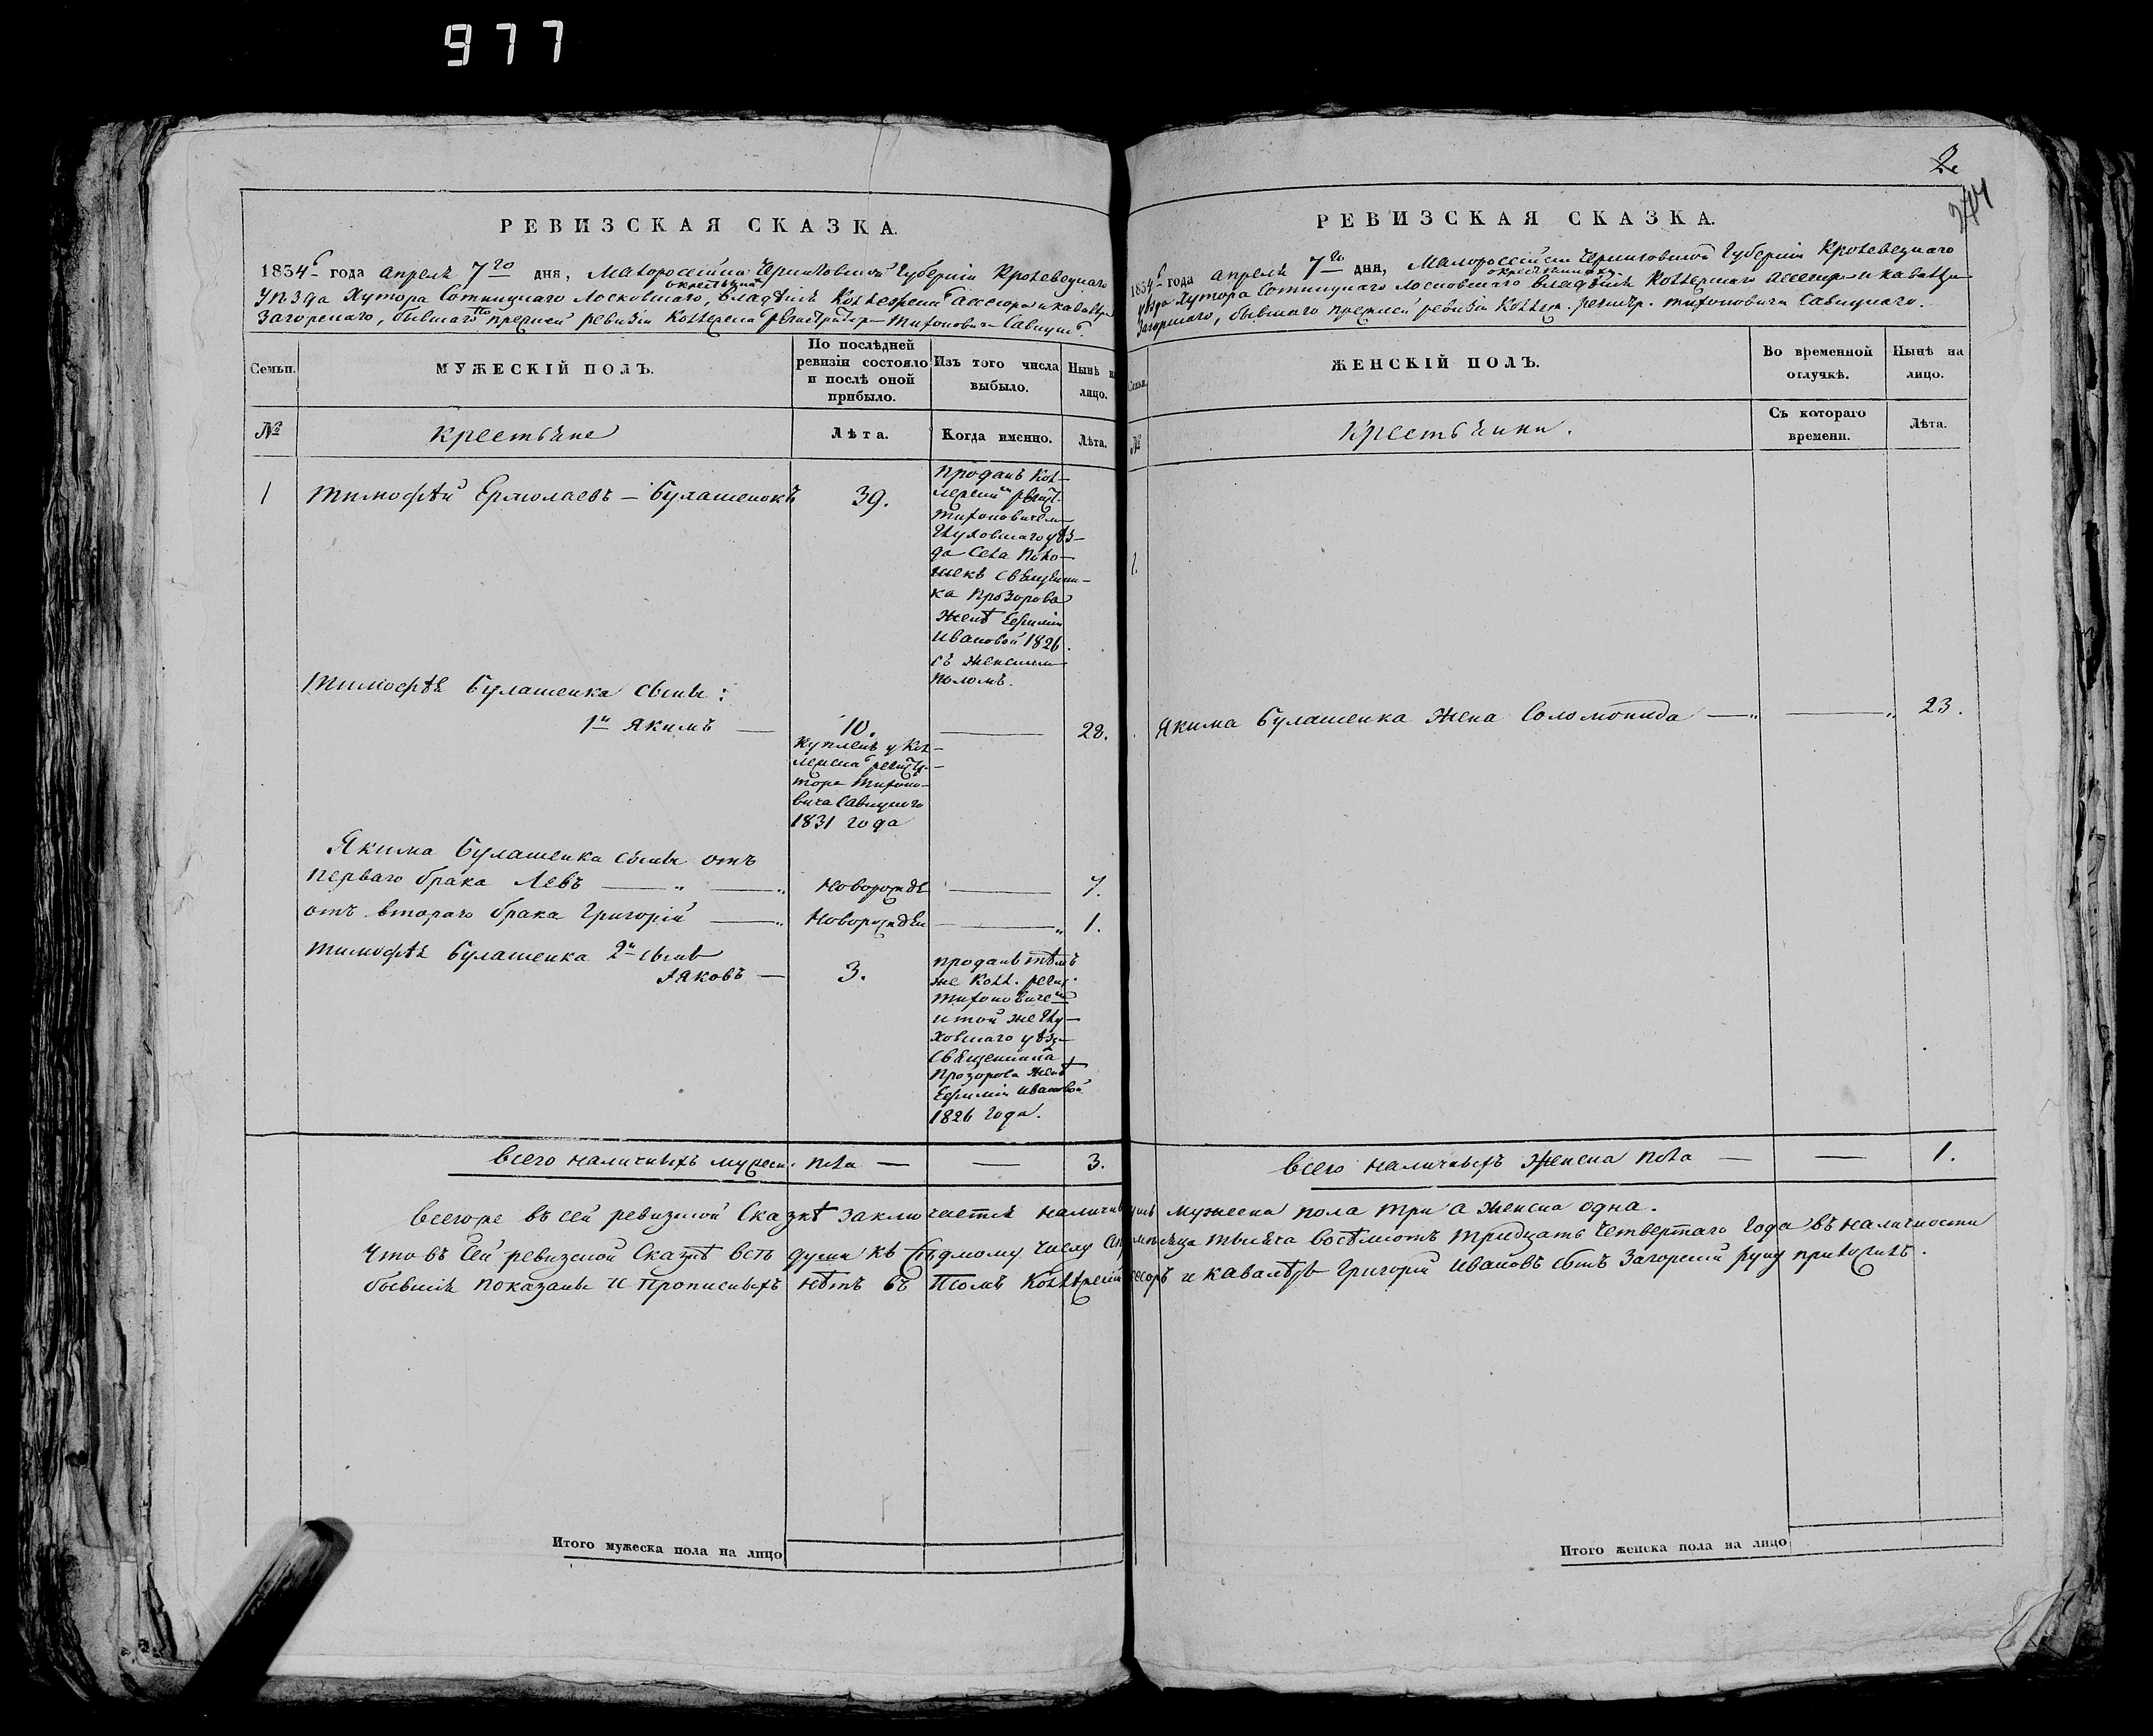 977
2.
244
РЕВИЗСКАЯ СКАЗКА.
1834 года апреля 7го дня, Малороссійской Черниговской Губерніи Кролевецкаго
о крестьянахъ
Уѣзда Хутора Сотницкаго Московскаго, владѣнія Коллежскаго Ассесора и кавалера
Загорскаго, бывшаго по прежней ревизіи Коллежска регистратора Тихоновича Савицкаго
Семьи.
МУЖЕСКІЙ ПОЛЪ.
По послѣдней ревизіи состояло и послѣ оной прибыло.
Изъ того числа выбыло.
Нынѣ на лицо.
№
Крестьяне
Лѣта.
Когда именно.
Лѣта.
1 Тимофѣй Ермолаевъ – Булашенокъ 39.
проданъ Кол-
лежским регист.
Тихоновичем
Глуховскаго уѣз-
да Села Поло-
шекъ священни-
ка Прозорова
женѣ Ефиміи
Ивановой 1826
съ женским
поломъ.
Тимофѣя Булашенка сыны:
1й Якимъ — 10. — 28.
Купленъ у Кол-
лежска регистра-
тора Тихоно-
вича Савицкаго
1831 года
Якима Булашенка сыны отъ
перваго брака Левъ — новорожде — 7.
отъ втораго брака Григорій — новорожден — 1.
Тимофѣя Булашенка 2й сынъ
Яковъ — 3.
проданъ тѣмъ
же Колл. регис.
Тихоновичем
и той же Глу-
ховскаго уѣзд
священника
Прозорова женѣ
Ефиміи Ивановой
1826 года.
всего наличныхъ мужеск. пола — — 3.
РЕВИЗСКАЯ СКАЗКА.
1834 года апреля 7го дня, Малороссійской Черниговской Губерніи Кролевецкаго
о крестьянахъ
уѣзда Хутора Сотницкаго Московскаго владѣнія Коллежскаго Ассесора и кавалера
Загорскаго, бывшаго прежней ревизіи Коллеж. регистр. Тихоновича Савицкаго.
Семьи.
ЖЕНСКІЙ ПОЛЪ.
Во временной отлучкѣ.
Нынѣ на лицо.
№
Крестьянки.
Съ котораго времени.
Лѣта.
1.
Якима Булашенка жена Соломонида — — 23.
всего наличныхъ женска пола — — 1.
всего же въ сей ревизской Сказкѣ заключается наличныхъ душъ мужеска пола три а женска одна.
Что въ Сей ревизской Сказкѣ всѣ души къ седмому числу апреля мѣсяца тысяча восѣмсотъ тридцать четвертаго года въ наличности
бывшія показаны и прописныхъ нѣтъ въ томъ Коллежскій ассесоръ и кавалѣръ Григорій Ивановъ сынъ Загорскій руку приложилъ.
Итого мужеска пола на лицо
Итого женска пола на лицо